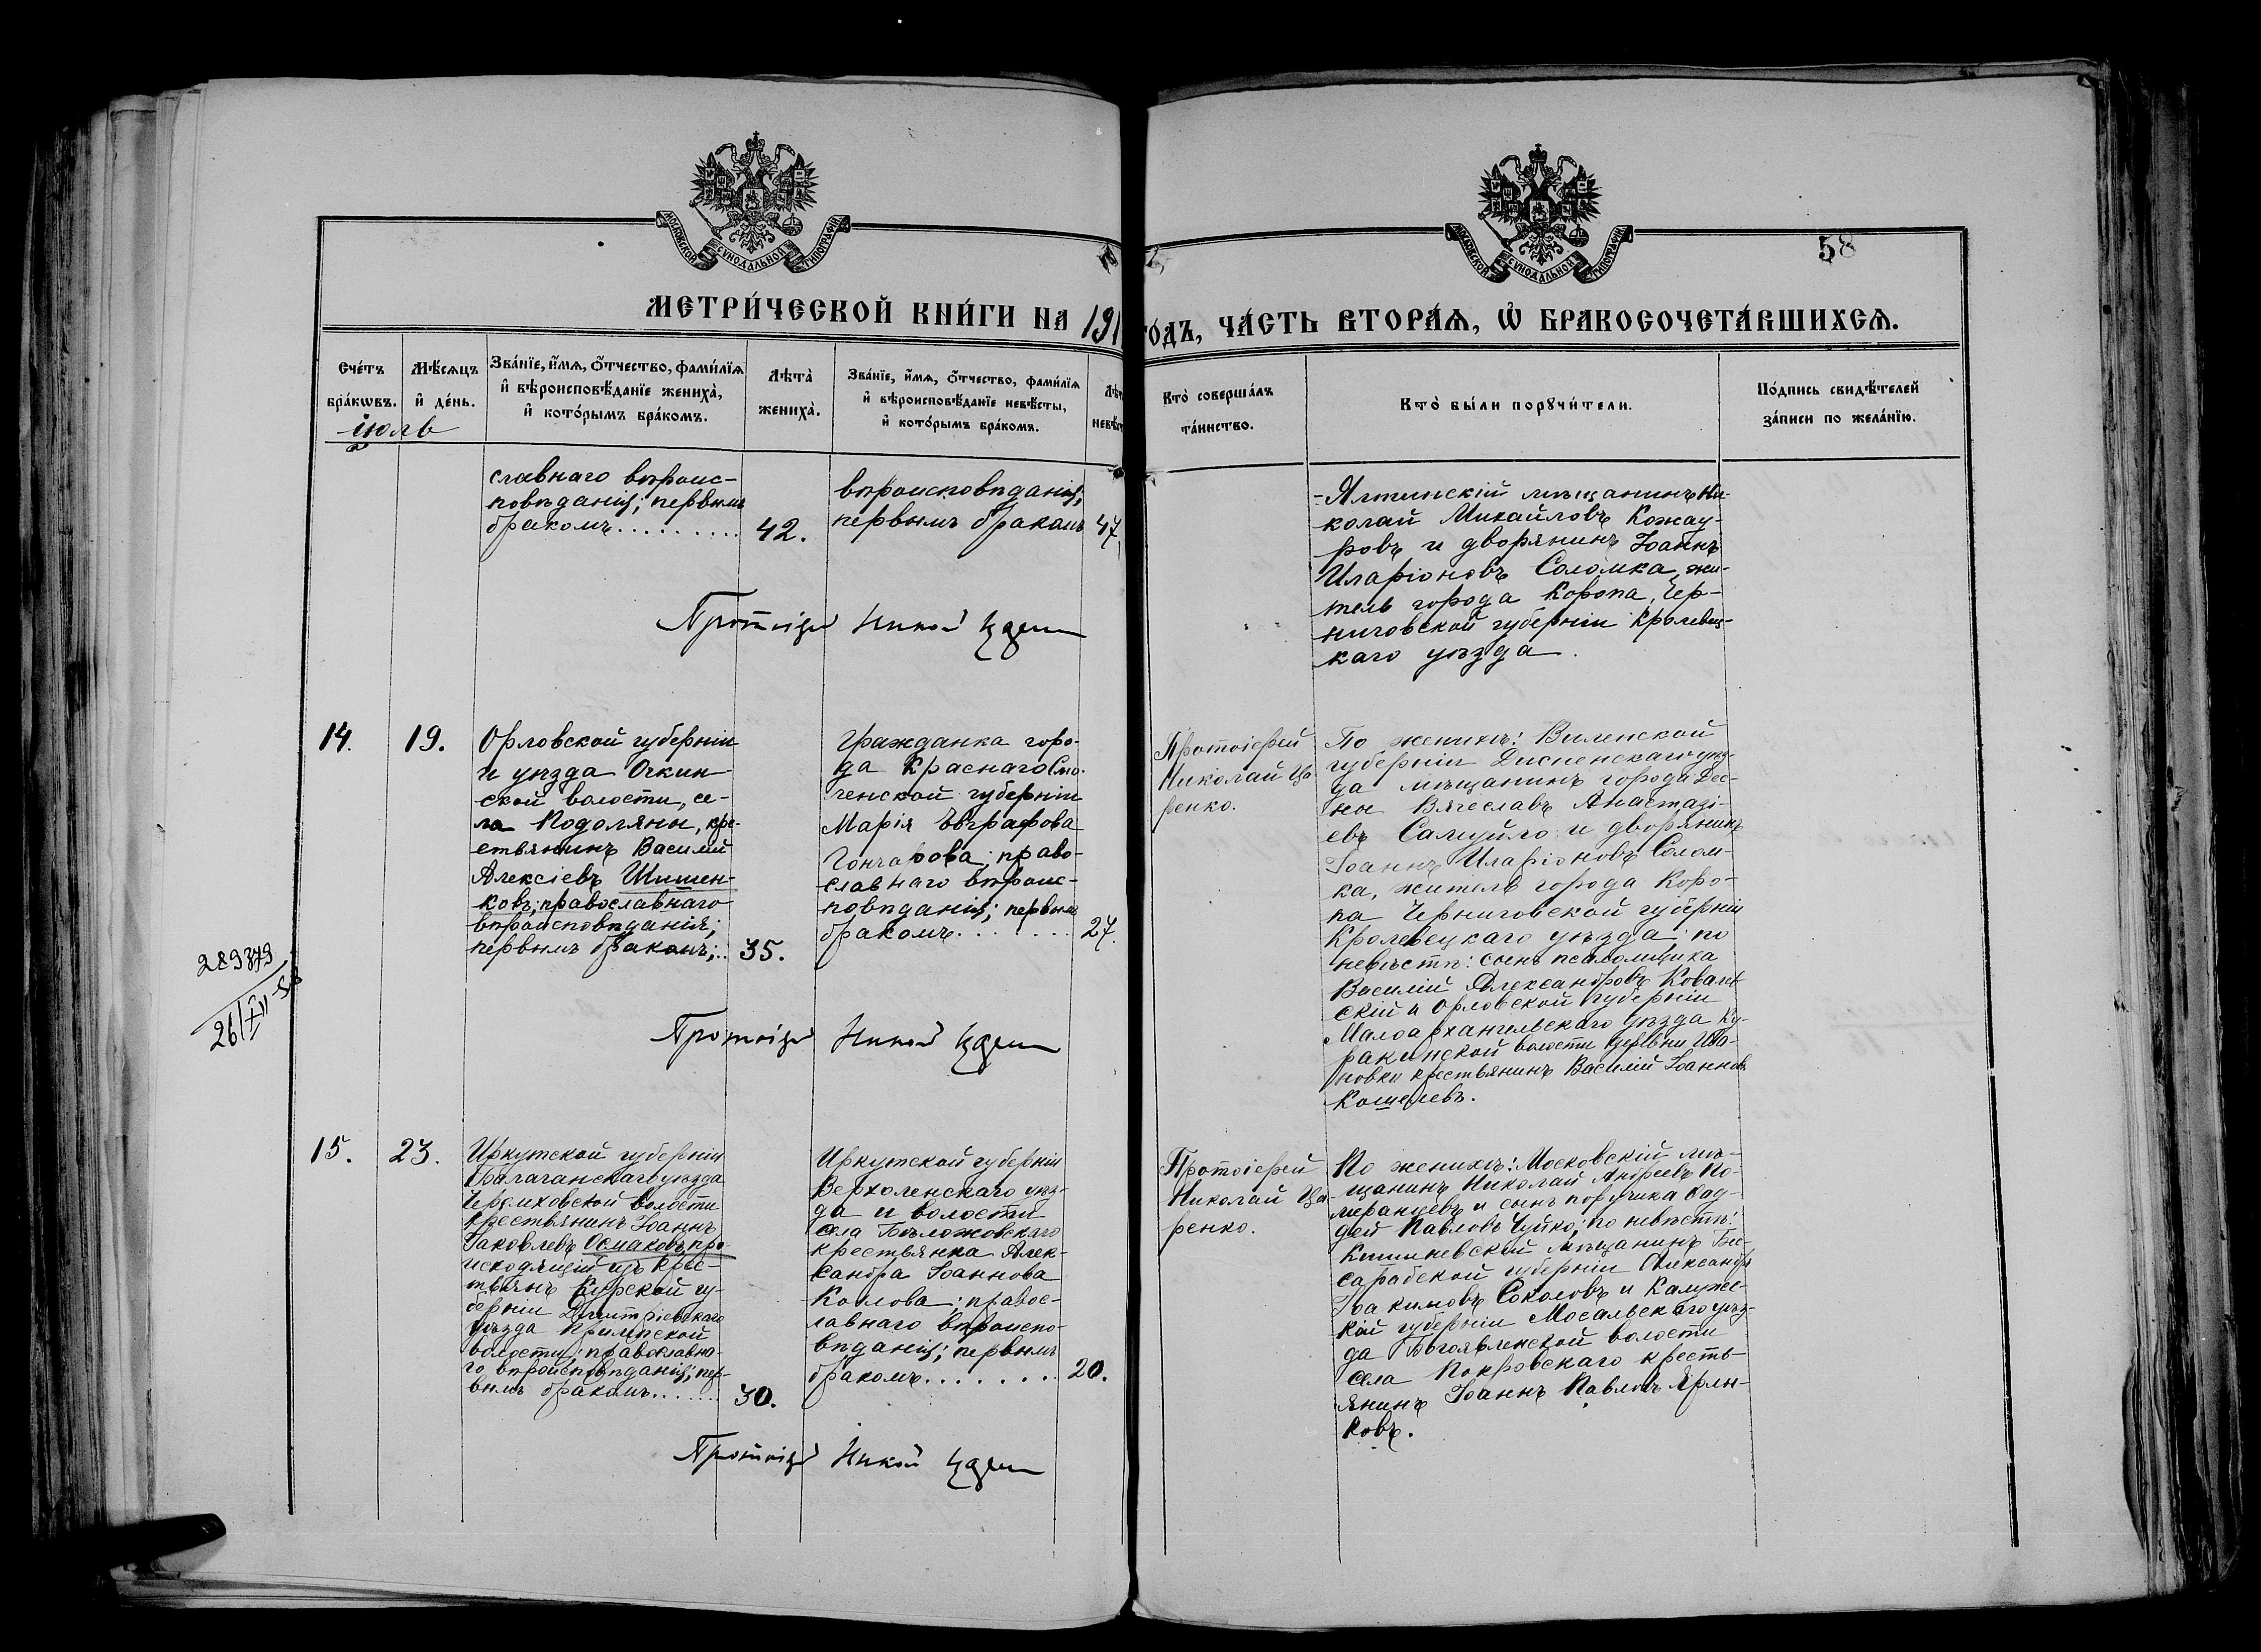 МОСКОВСКОЙ СѴНОДАЛЬНОЙ ТИПОГРАФІИ
МОСКОВСКОЙ СѴНОДАЛЬНОЙ ТИПОГРАФІИ
58
МЕТРИ́ЧЕСКОЙ КНИ́ГИ НА 191
ГО́ДЪ, ЧА́СТЬ ВТОРА́Ѧ, Ѡ҆ БРАКОСОЧЕТА́ВШИХСѦ.
Сче́тъ бра́кѡвъ.
Мѣ́сѧцъ и҆ де́нь.
Зва́нїе, и҆́мѧ, ѻ҆́тчество, фами́лїѧ
и҆ вѣроисповѣ́данїе жениха̀,
и҆ кото́рымъ бра́комъ.
Лѣ́та̀ жениха̀.
Зва́нїе, и҆́мѧ, ѻ҆́тчество, фами́лїѧ
и҆ вѣроисповѣ́данїе невѣ́сты,
и҆ кото́рымъ бра́комъ.
Лѣт
невѣс
Кто̀ соверша́лъ
та́инство.
Кто̀ бы́ли порꙋчи́тели.
По́дпись свидѣ́телей
за́писи по жела́нїю.
іюль
славнаго вѣроис-
повѣданія; первымъ
бракомъ.........
42.
вѣроисповѣданія;
первымъ бракомъ
47
-Ялтинскій мѣщанинъ Ни-
колай Михайловъ Кожау-
ровъ и дворянинъ Іоаннъ
Иларіоновъ Соломка, жи-
тель города Коропа, Чер-
ниговской губерніи Кролевец-
каго уѣзда.
Протоіер Никол
14.
19.
Орловской губерніи
и уѣзда Очкин-
ской волости, се-
ла Подоляны, кре-
стьянинъ Василій
Алексіевъ Шишен-
ковъ; православнаго
вѣроисповѣданія;
первымъ бракомъ;..
35.
Гражданка горо-
да Краснаго Смо-
ленской губерніи
Марія Евграфова
Гончарова; право-
славнаго вѣроис-
повѣданія; первымъ
бракомъ........
27.
Протоіерей
Николай Ца-
ренко.
По женихѣ: Виленской
губерніи Дисненскаго уѣз-
да мѣщанинъ города Дис-
ны Вячеславъ Анастазі-
евъ Самуйло и дворянинъ
Іоаннъ Иларіоновъ Солом-
ка, житель города Коро-
па Черниговской губерніи
Кролевецкаго уѣзда; по
невѣстѣ: сынъ псаломщика
Василій Александровъ Коваль-
скій и Орловской губерніи
Малоархангельскаго уѣзда Ку-
ракинской волости деревни Ива-
новки крестьянинъ Василій Іоанновъ
Кошелевъ.
289379
26/XII-58
Протоіер Никол
15.
23.
Иркутской губерніи
Балаганскаго уѣзда
Черемховской волости
крестьянинъ Іоаннъ
Іаковлевъ Осмаковъ, про-
исходящій изъ крес-
тьянъ Курской гу-
берніи Дмитріевскаго
уѣзда Прилѣпской
волости; православна-
го вѣроисповѣданія; пер-
вымъ бракомъ.......
30.
Иркутской губерніи
Верхоленскаго уѣз-
да и волости
села
крестьянка Алек-
сандра Іоаннова
Козлова; правос-
лавнаго вѣроиспо-
вѣданія; первымъ
бракомъ........
20.
Протоіерей
Николай Ца-
ренко.
По женихѣ: Московскій мѣ-
щанинъ Николай Андреевъ По-
меранцевъ и сынъ поручика Фад-
дей Павловъ Чуйко; по невѣстѣ:
Кишиневскій мѣщанинъ Бес-
сарабской губерніи Александръ
Іоакимовъ Соколовъ и Калужс-
кой губерніи Мосальскаго уѣз-
да Богоявленской волости
села Покровскаго кресть-
янинъ Іоаннъ Павловъ Ярлы-
ковъ.
Протоіер Никол